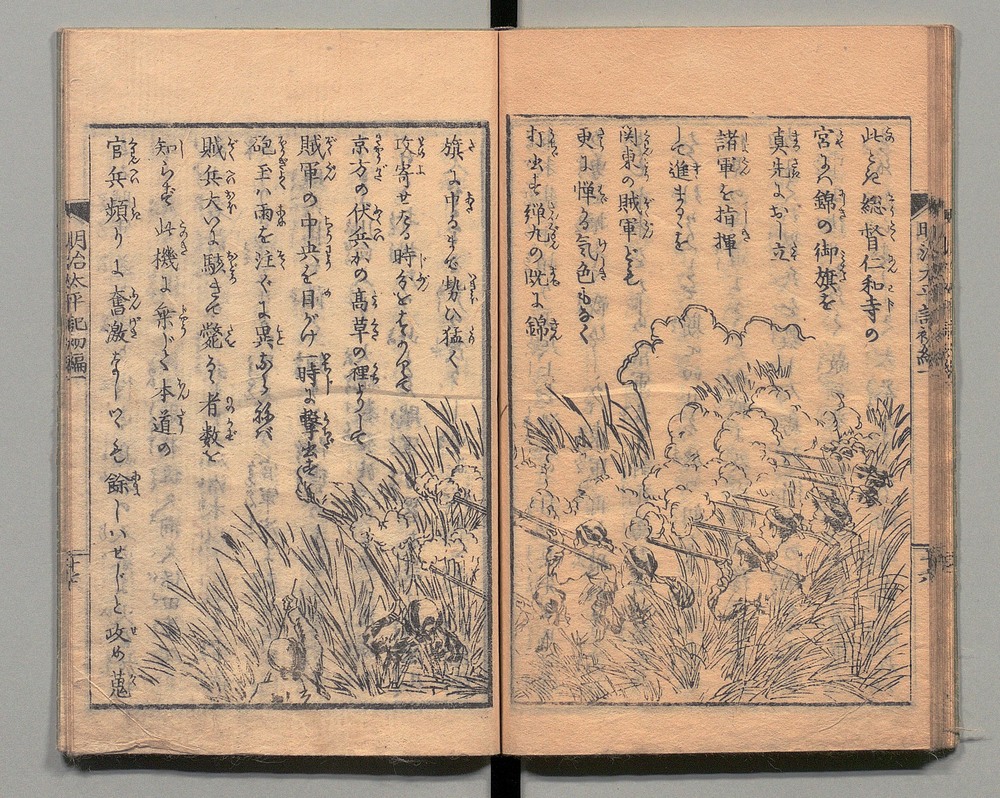 此とき総督仁和寺の
宮にハ錦の御旗を
真先におし立
諸軍を指揮
して進まるゝを
関東の賊軍ども
更に憚る気色もなく
打出す弾丸の既に錦
旗に中るまで勢ひ猛く
攻寄せたる時分をはかりて
京方の伏兵かの高草の裡よりして
賊軍の中央を目がけ一時に撃出す
砲玉ハ雨を注ぐに異ならねバ
賊兵大いに駭きて斃るゝ者数を
知らず此機に乗じて本道の
官兵頻りに奮激なしつゝも餘しハせじと攻め蒐
明治太平記初編一